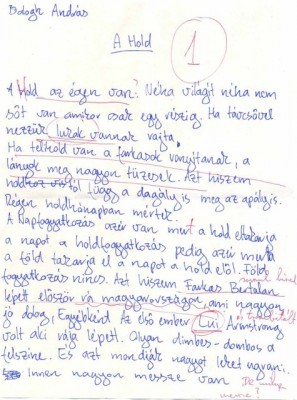 Balogh András
A Hold
1
A Hold az égen van. Néha világít néha nem
sőt van amikor csak egy részig. Ha távcsővel
nézzük lukak vannak rajta.
Ha telihold van a farkasok vonyítanak, a
lányok meg nagyon tüzesek. Azt hiszem
függ a dagály is meg az apály is.
Régen holdhónapban mértek.
A Napfogyatkozás azér van mert a hold eltakarja
a napot a holdfogyatkozás pedig azér mert
a föld takarja el a napot a hold elöl. Föld
fogyatkozás nincs. Azt hiszem Farkas Bertalan
lépett elöször rá magyarországra, ami nagyon
jó dolog, Egyébként Az első ember Lui Armstrong
volt aki rája lépett. Olyan dimbes-dombos a
felszine. És azt mondják nagyot lehet ugrani.
Innen nagyon messze van
De mennyire?